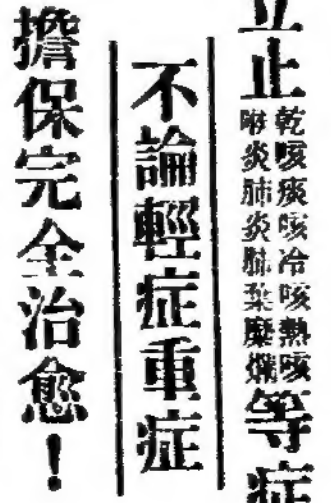 立止
乾咳痰咳冷咳熱咳
咻炎肺炎肺葉糜爛
等症
不論輕症重症
擔保完全治愈！